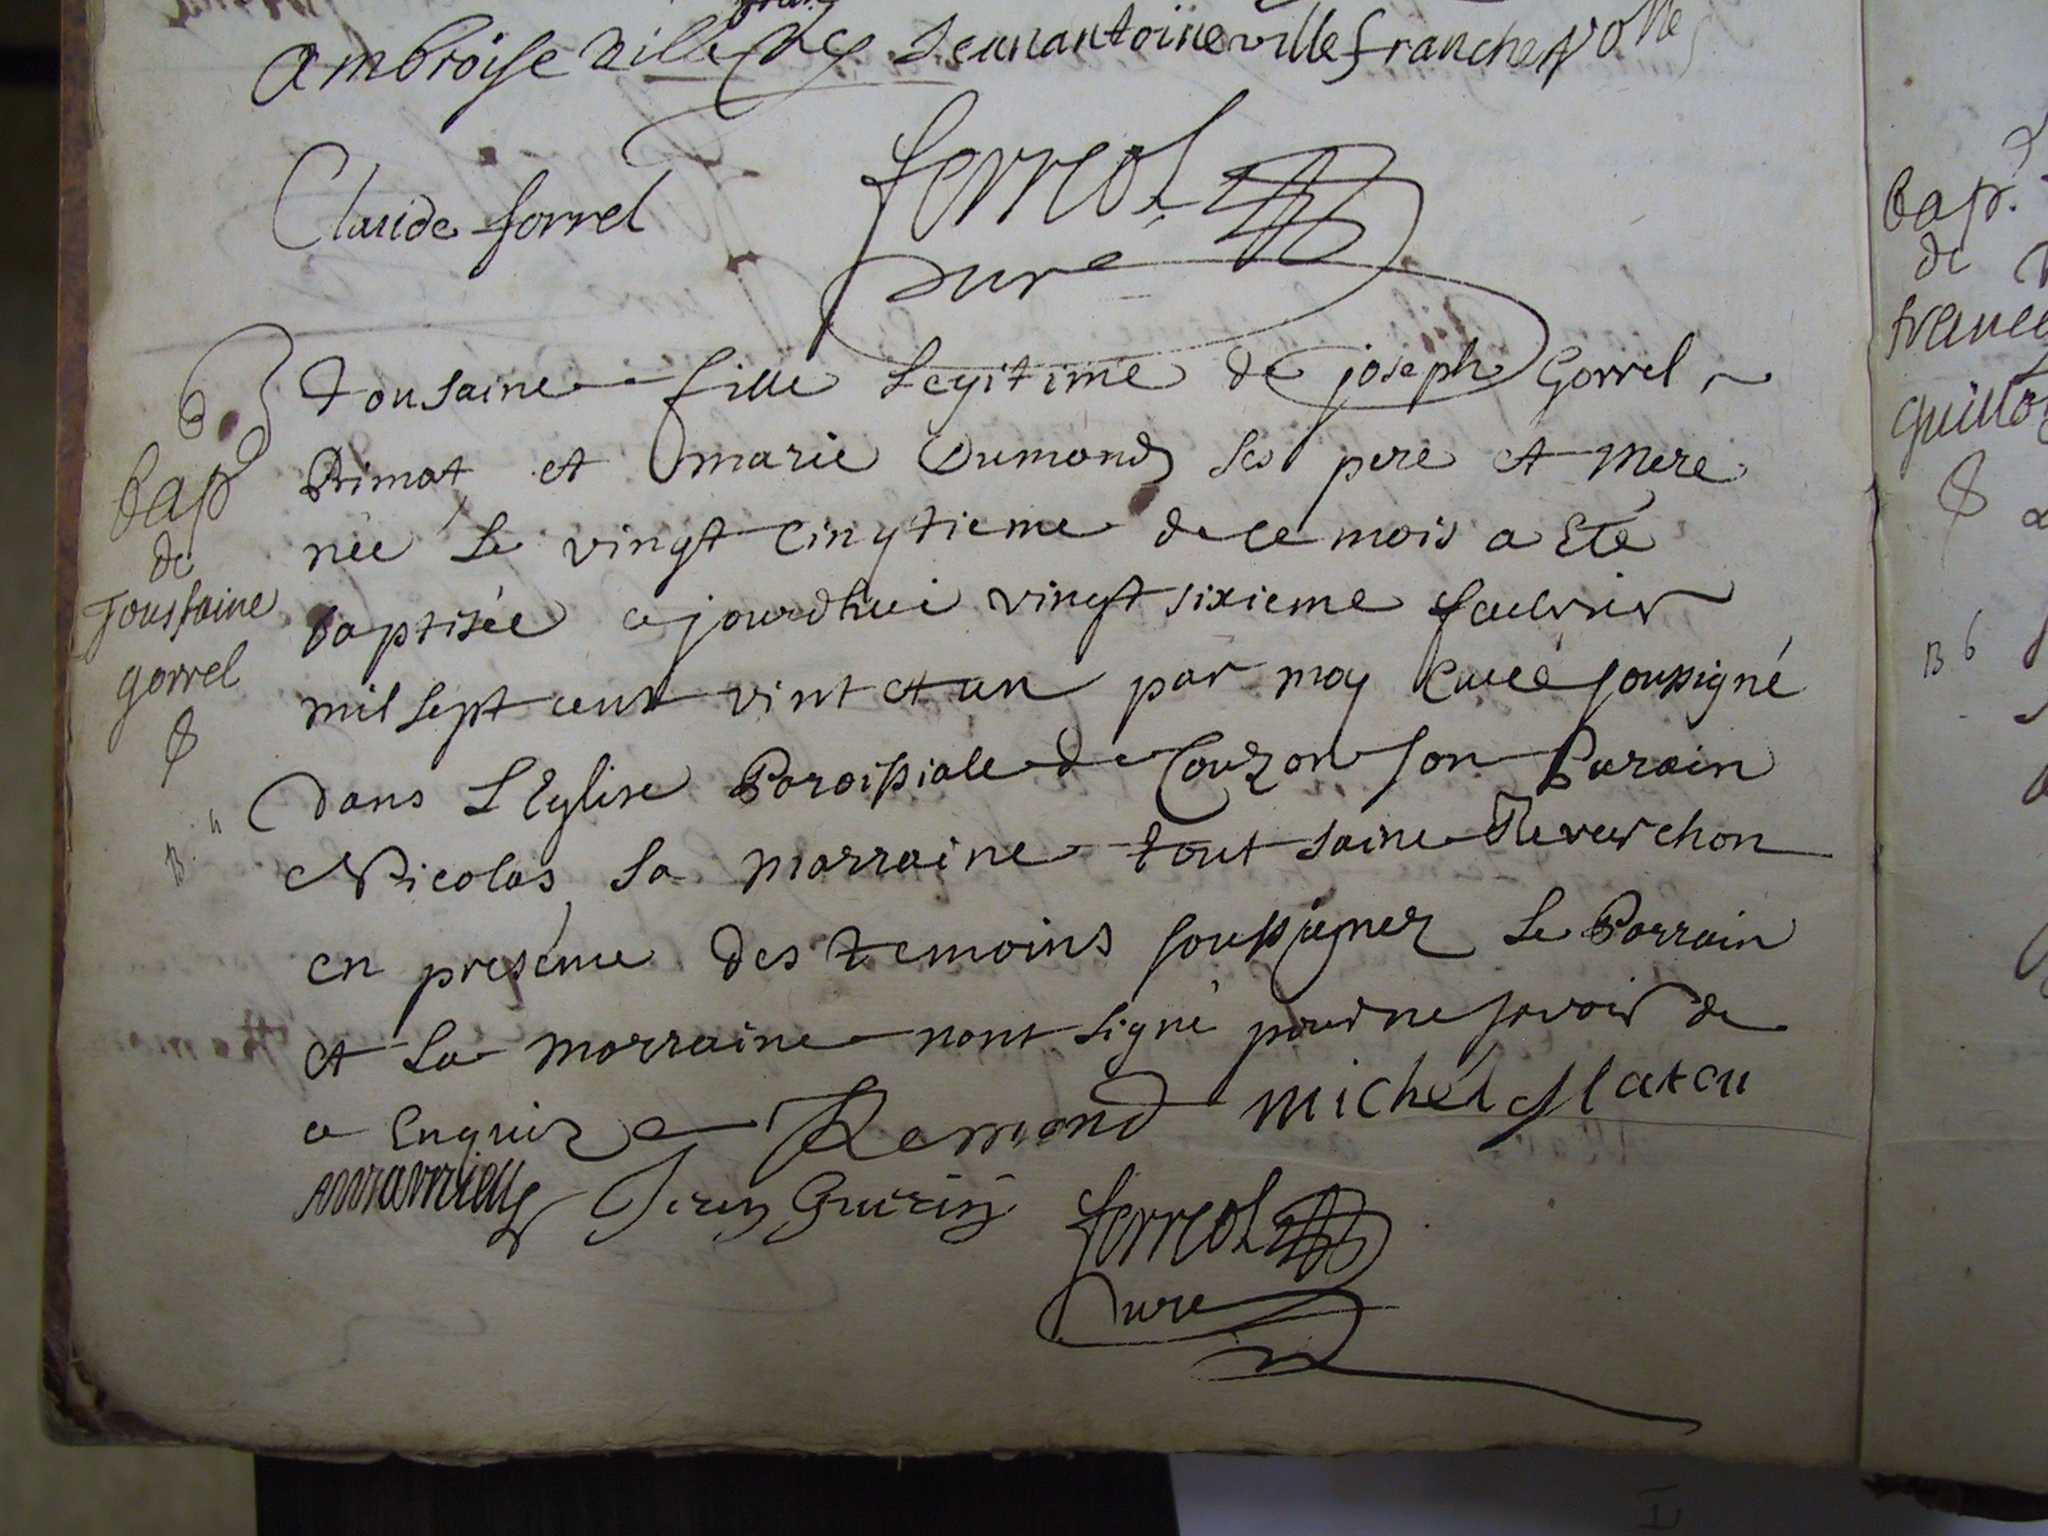 ambroise ville Jeanantoine villefranche
Claude Gorrel
ferreol
Curé
6
bap
de
Toussaine
gorrel
tousaine fille Legitime de joseph Gorrel
Rimat et marie Dumond ses pere et mere
née Le vingt cinqtieme de ce mois a Eté
baptisée a jourdhui vingt sixieme feubrier
mil sept cent vint et un par moy Curé soussigné
Dans L'Eglise Paroissiale de Couzon son Parain
Nicolas, sa marraine tout saine Reverchon
en presence des temoins soussignez Le Parrain
et La marraine nont signé pour ne savoir de
ce Enquiz Remond Michel flateu
Jean Guerin
ferreol
Cure
bap.
de
france
guillo
B 6